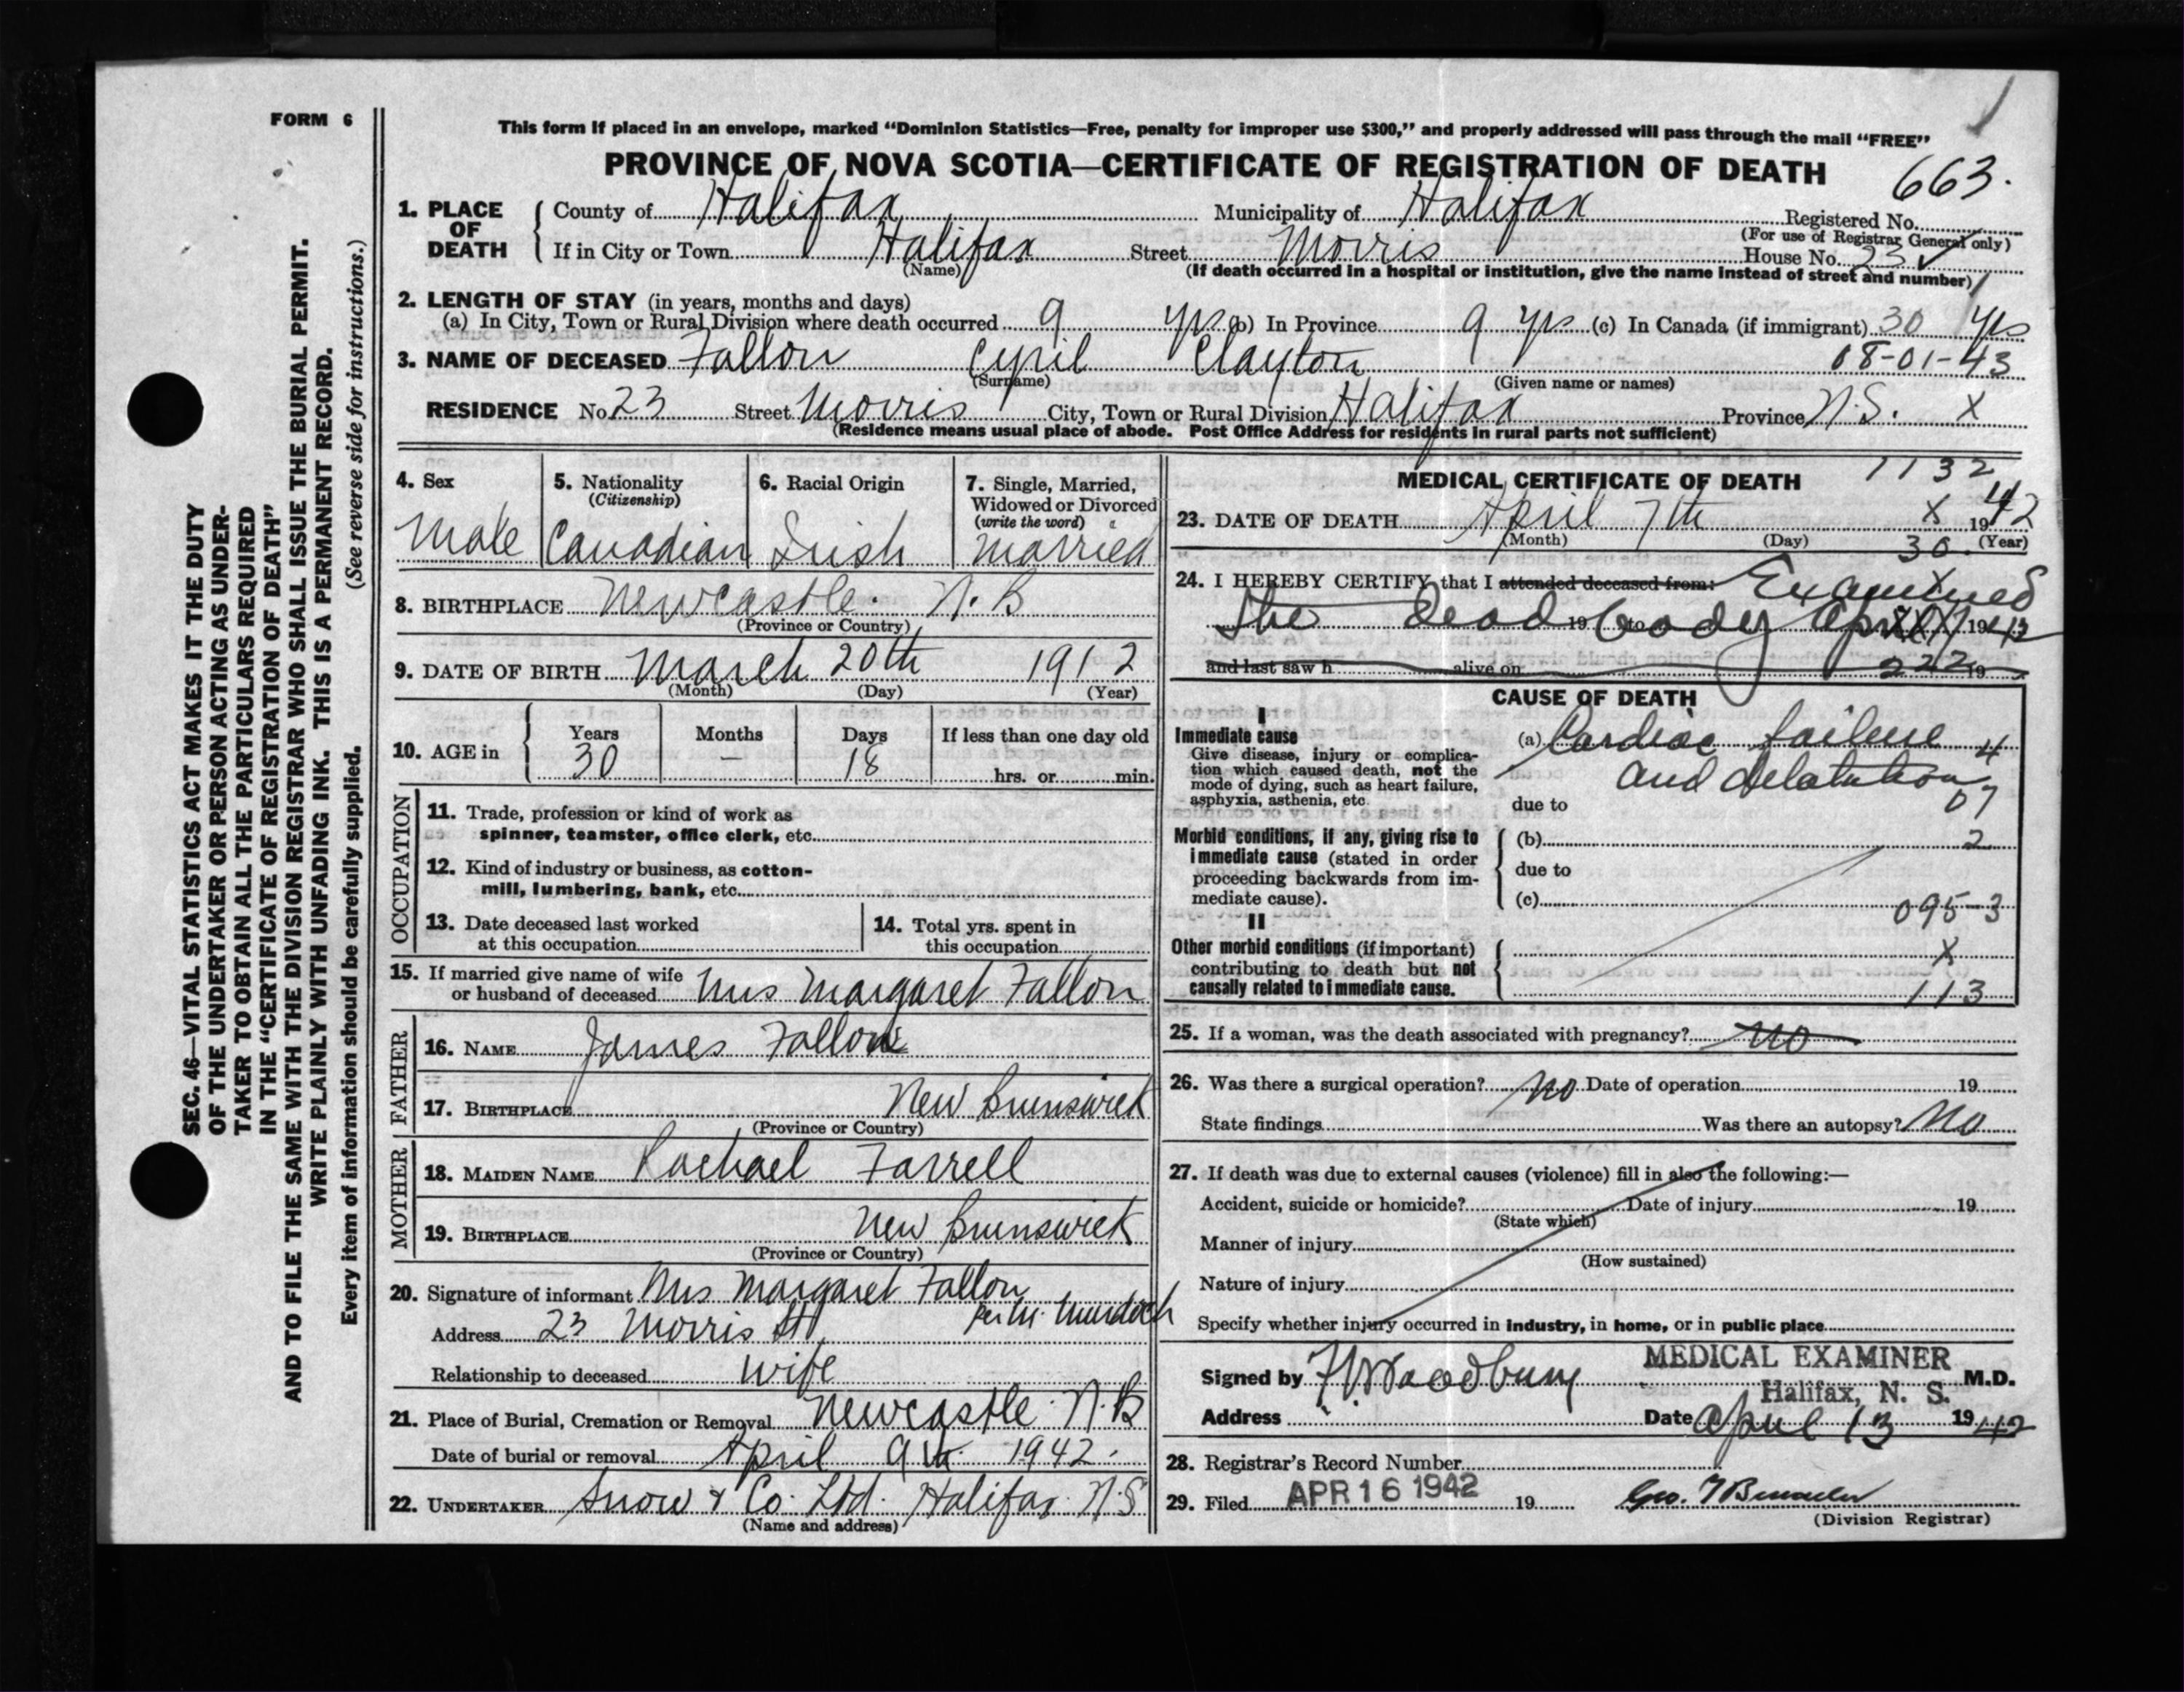 FORM 6
This form if placed in an envelope, marked “Dominion Statistics—Free, penalty for improper use $300,” and properly addressed will pass through the mail “FREE”
PROVINCE OF NOVA SCOTIA—CERTIFICATE OF REGISTRATION OF DEATH
663.
1. PLACE OF DEATH
County of Halifax Municipality of Halifax Registered No.
(For use of Registrar General only)
If in City or Town Halifax Street Morris House No. 23
(Name) (If death occurred in a hospital or institution, give the name instead of street and number)
2. LENGTH OF STAY (in years, months and days)
(a) In City, Town or Rural Division where death occurred 9 yrs (b) In Province 9 yrs (c) In Canada (if immigrant) 30 yrs
3. NAME OF DECEASED Fallon Cyril Clayton 08-01-43
(Surname) (Given name or names)
RESIDENCE No. 23 Street Morris City, Town or Rural Division Halifax Province N.S. X
(Residence means usual place of abode. Post Office Address for residents in rural parts not sufficient)
4. Sex
Male
5. Nationality
(Citizenship)
Canadian
6. Racial Origin
Irish
7. Single, Married,
Widowed or Divorced
(write the word)
Married
8. BIRTHPLACE Newcastle. N.B
(Province or Country)
9. DATE OF BIRTH March 20th 1912
(Month) (Day) (Year)
10. AGE in
Years Months Days If less than one day old
30 — 18 hrs. or min.
OCCUPATION
11. Trade, profession or kind of work as
spinner, teamster, office clerk, etc.
12. Kind of industry or business, as cotton-
mill, lumbering, bank, etc.
13. Date deceased last worked
at this occupation
14. Total yrs. spent in
this occupation
15. If married give name of wife
or husband of deceased Mrs Margaret Fallon
FATHER
16. NAME James Fallon
17. BIRTHPLACE New Brunswick
(Province or Country)
MOTHER
18. MAIDEN NAME Rachael Farrell
19. BIRTHPLACE New Brunswick
(Province or Country)
20. Signature of informant Mrs Margaret Fallon
Per M. Murdoch
Address 23 Morris St.
Relationship to deceased wife
21. Place of Burial, Cremation or Removal Newcastle N.B
Date of burial or removal April 9th 1942.
22. UNDERTAKER Snow & Co. Ltd. Halifax N.S
(Name and address)
MEDICAL CERTIFICATE OF DEATH 1132
23. DATE OF DEATH April 7th X 1942
(Month) (Day) (Year)
30.
24. I HEREBY CERTIFY that I attended deceased from: Examined
the dead body April 19 to 1942
and last saw h alive on 19
222
CAUSE OF DEATH
I
Immediate cause
Give disease, injury or complica-
tion which caused death, not the
mode of dying, such as heart failure,
asphyxia, asthenia, etc.
(a) Cardiac failure 4
and delatation
07
due to
Morbid conditions, if any, giving rise to
immediate cause (stated in order
proceeding backwards from im-
mediate cause).
(b) 2
due to
(c) 095-3
II
Other morbid conditions (if important)
contributing to death but not
causally related to immediate cause.
X
113
25. If a woman, was the death associated with pregnancy? no
26. Was there a surgical operation? no Date of operation 19
State findings Was there an autopsy? No
27. If death was due to external causes (violence) fill in also the following:—
Accident, suicide or homicide? Date of injury 19
(State which)
Manner of injury
(How sustained)
Nature of injury
Specify whether injury occurred in industry, in home, or in public place
Signed by Woodbury MEDICAL EXAMINER M.D.
Halifax, N. S.
Address Date April 13 1942
28. Registrar's Record Number
29. Filed APR 16 1942 19
(Division Registrar)
SEC. 46—VITAL STATISTICS ACT MAKES IT THE DUTY
OF THE UNDERTAKER OR PERSON ACTING AS UNDER-
TAKER TO OBTAIN ALL THE PARTICULARS REQUIRED
IN THE “CERTIFICATE OF REGISTRATION OF DEATH”
AND TO FILE THE SAME WITH THE DIVISION REGISTRAR WHO SHALL ISSUE THE BURIAL PERMIT.
WRITE PLAINLY WITH UNFADING INK. THIS IS A PERMANENT RECORD.
Every item of information should be carefully supplied. (See reverse side for instructions.)